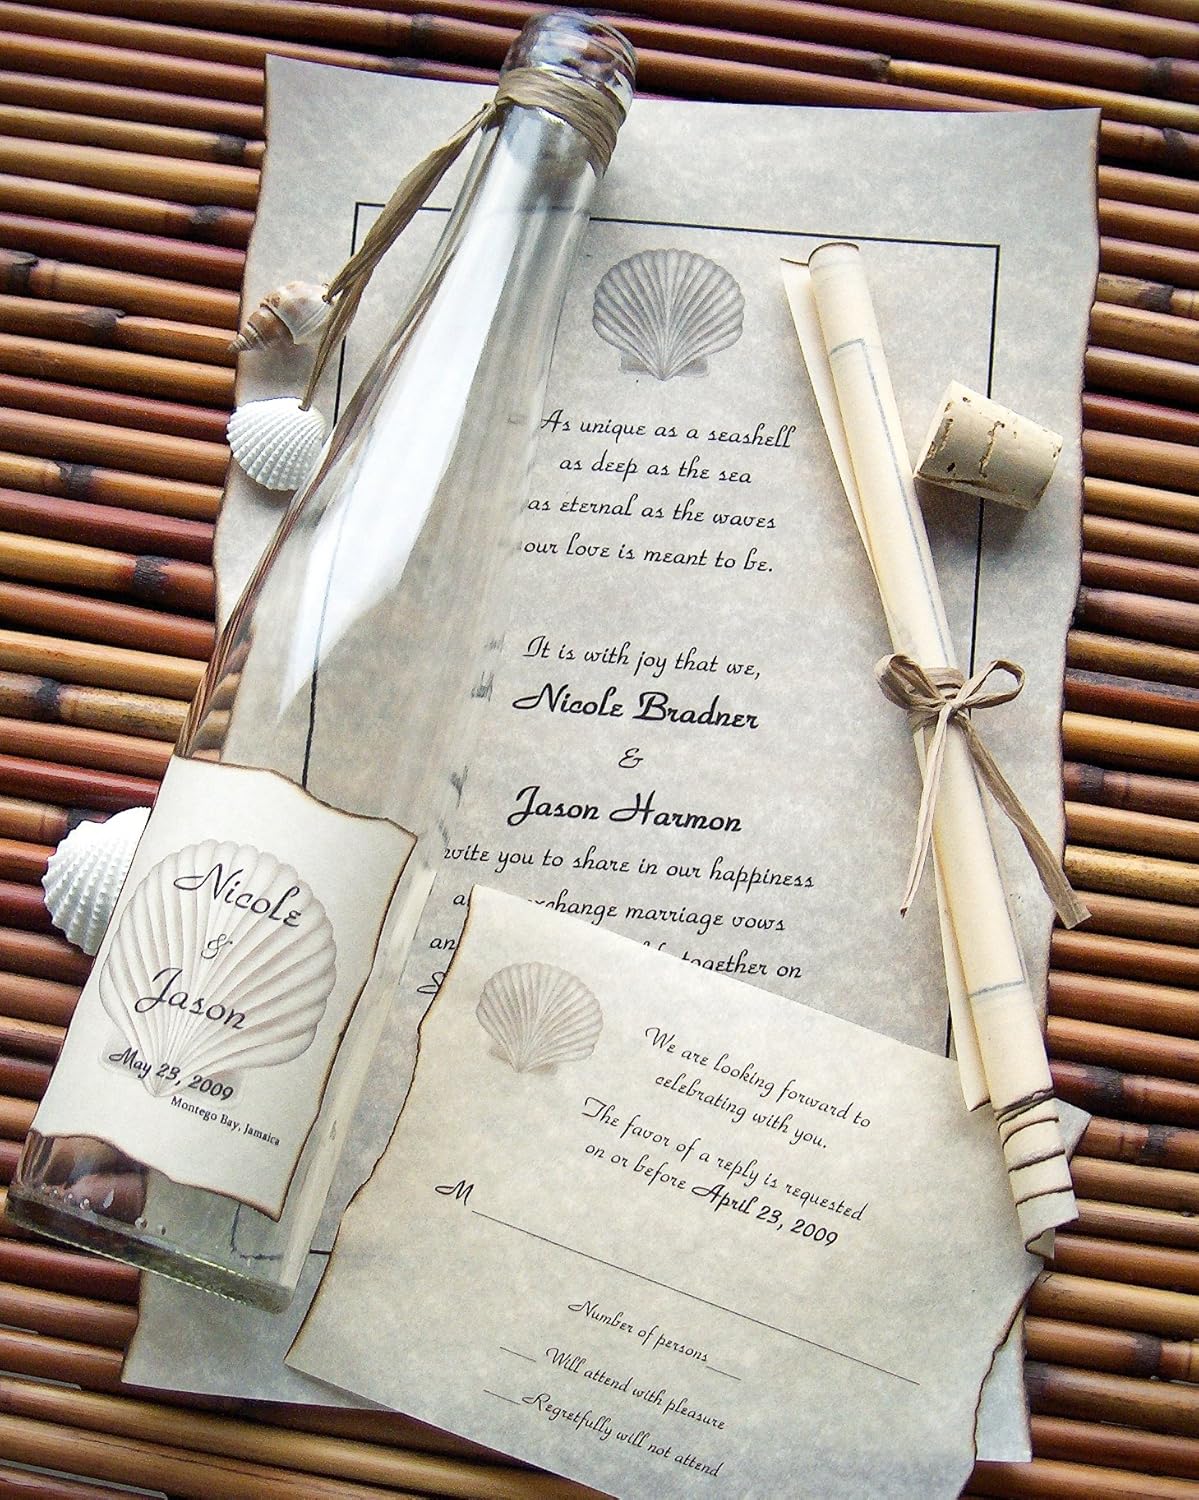 As unique as a seashell
as deep as the sea
as eternal as the waves
our love is meant to be.
It is with joy that we,
Nicole Bradner
&
Jason Harmon
you to share in our happiness
marriage vows
together on
Nicole
&
Jason
May 23, 2009
Montego Bay, Jamaica
We are looking forward to
celebrating with you.
The favor of a reply is requested
on or before April 23, 2009
M
Number of persons
Will attend with pleasure
Regretfully will not attend